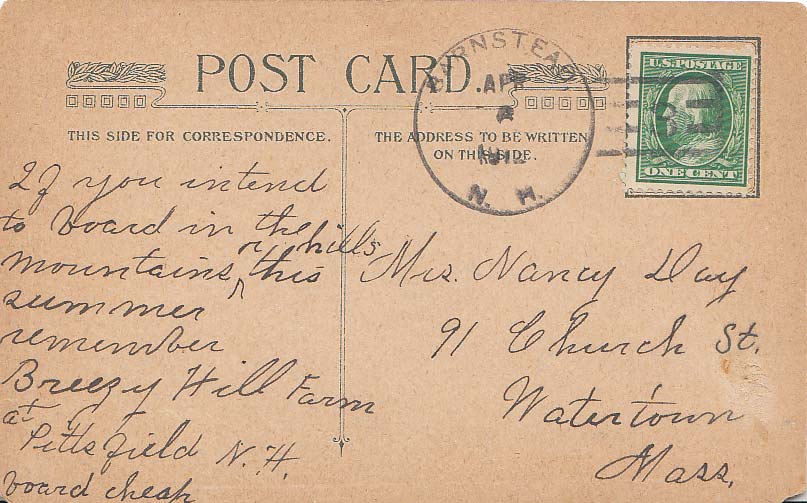 POST CARD.
THIS SIDE FOR CORRESPONDENCE.
THE ADDRESS TO BE WRITTEN
ON THIS SIDE.
BARNSTEAD
APR
1912
N. H.
U.S. POSTAGE
ONE CENT
If you intend
to board in the
or hills
mountains, this
summer
remember
Breezy Hill Farm
at
Pittsfield N.H.
board cheap
Mrs. Nancy Day
91 Church St.
Watertown
Mass.